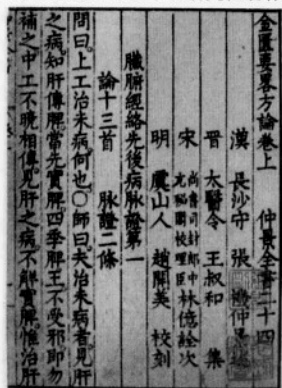 金匱要略方論卷上 仲景全書二十四
漢 長沙守 張 機仲景 述
晉 太醫令 王叔和 集
宋 尚書司封郎中
充秘閣校理臣 林億詮次
明 虞山人 趙開美 校刻
臟腑經絡先後病脉證第一
論十三首 脉證二條
問曰。上工治未病何也。○師曰。夫治未病者。見肝
之病。知肝傳脾。當先實脾。四季脾王不受邪。即勿
補之。中工不曉相傳。見肝之病。不解實脾。惟治肝